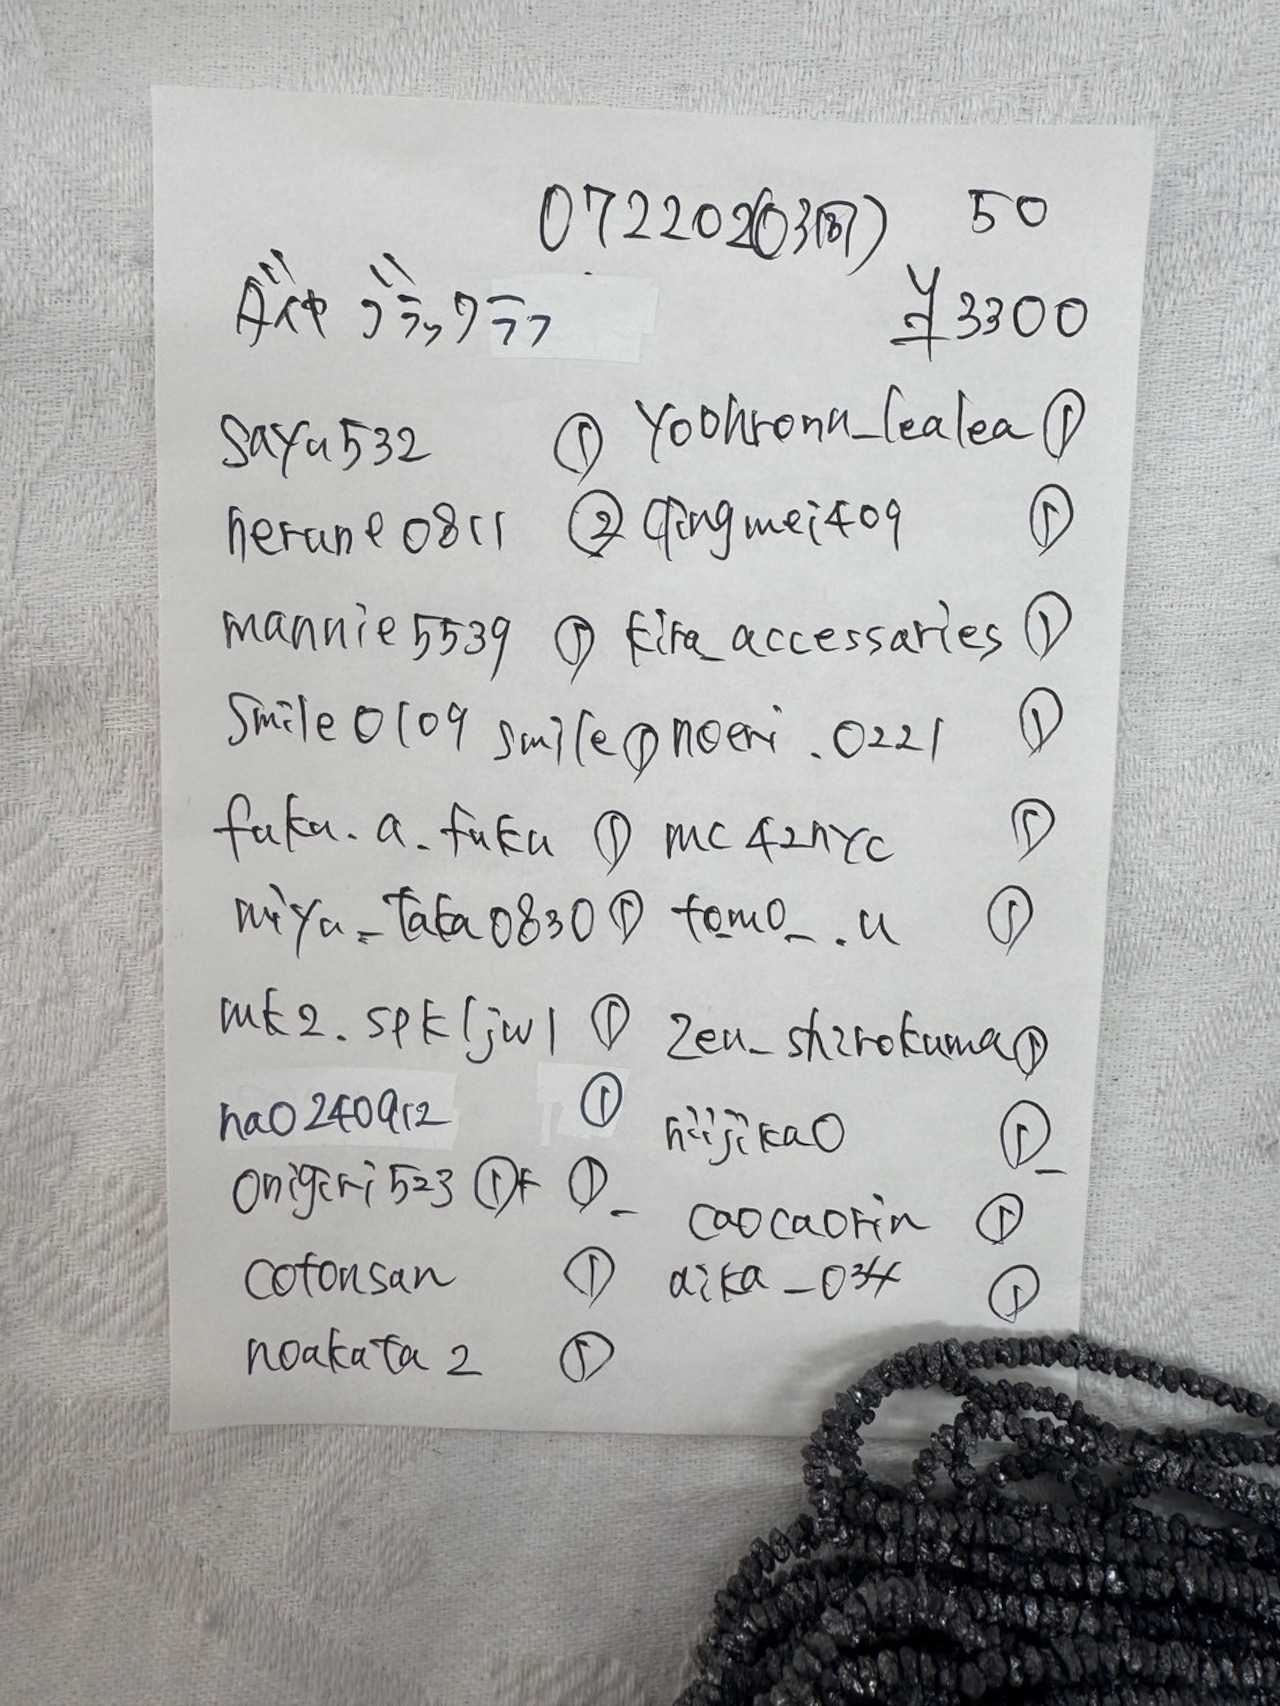 50
¥3300
sayu532 ①
yoohronu_lealea ①
herune0811 ②
qingmei409 ①
mannie5539 ①
kira_accessaries ①
smile0109smile ①
noeri.0221 ①
fuku.a.fuku ①
mc42nyc ①
miyu_taka0830 ①
tomo_.u ①
mk2.spkljwl ①
zeu_shirokuma ①
nao240912 ①
niijikao ①
onigiri523 ① ①
caocaorin ①
cotonsan ①
aika_034 ①
noakata2 ①